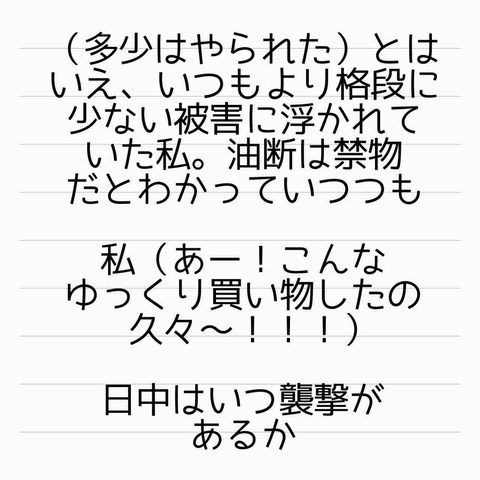 （多少はやられた）とは
いえ、いつもより格段に
少ない被害に浮かれて
いた私。油断は禁物
だとわかっていつつも
私（あー！こんな
ゆっくり買い物したの
久々〜！！！）
日中はいつ襲撃が
あるか